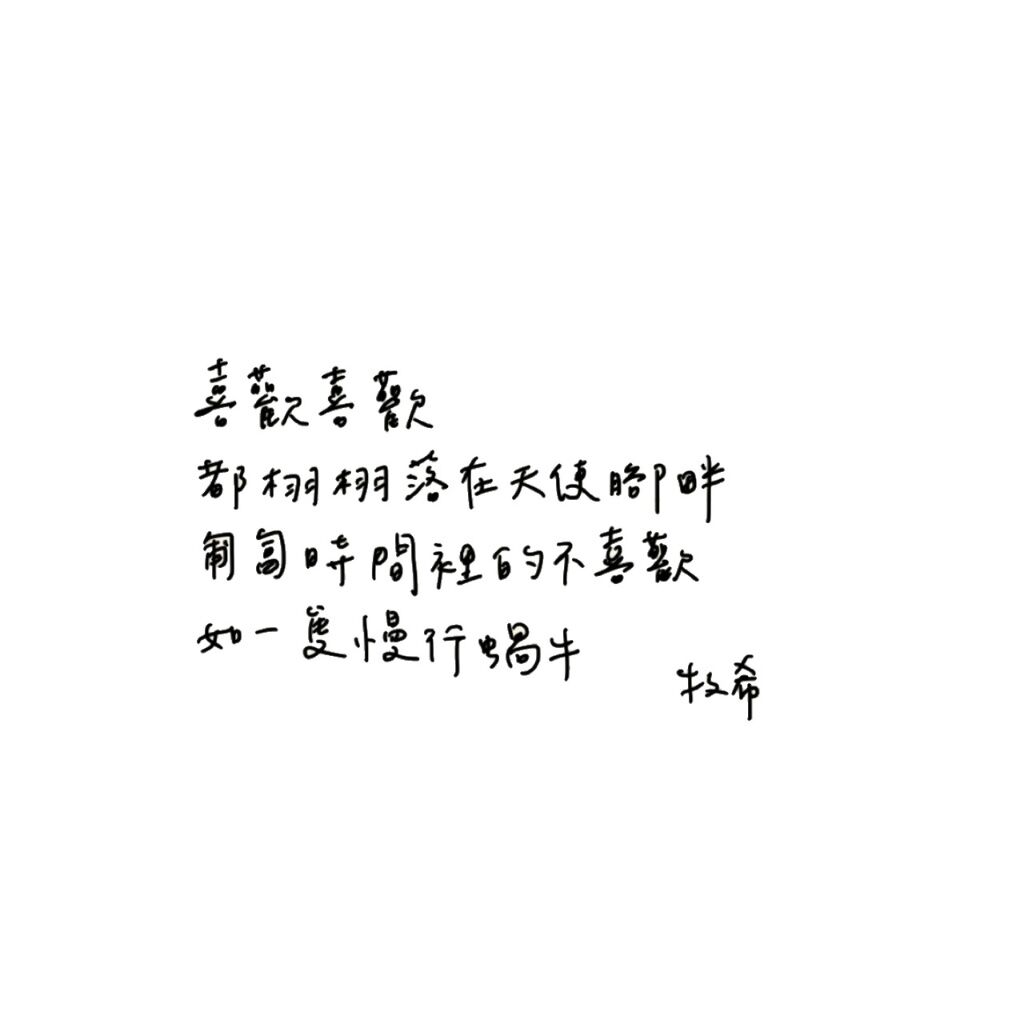 喜歡喜歡
都栩栩落在天使腳畔
匍匐時間裡的不喜歡
如一隻慢行蝸牛
牧希